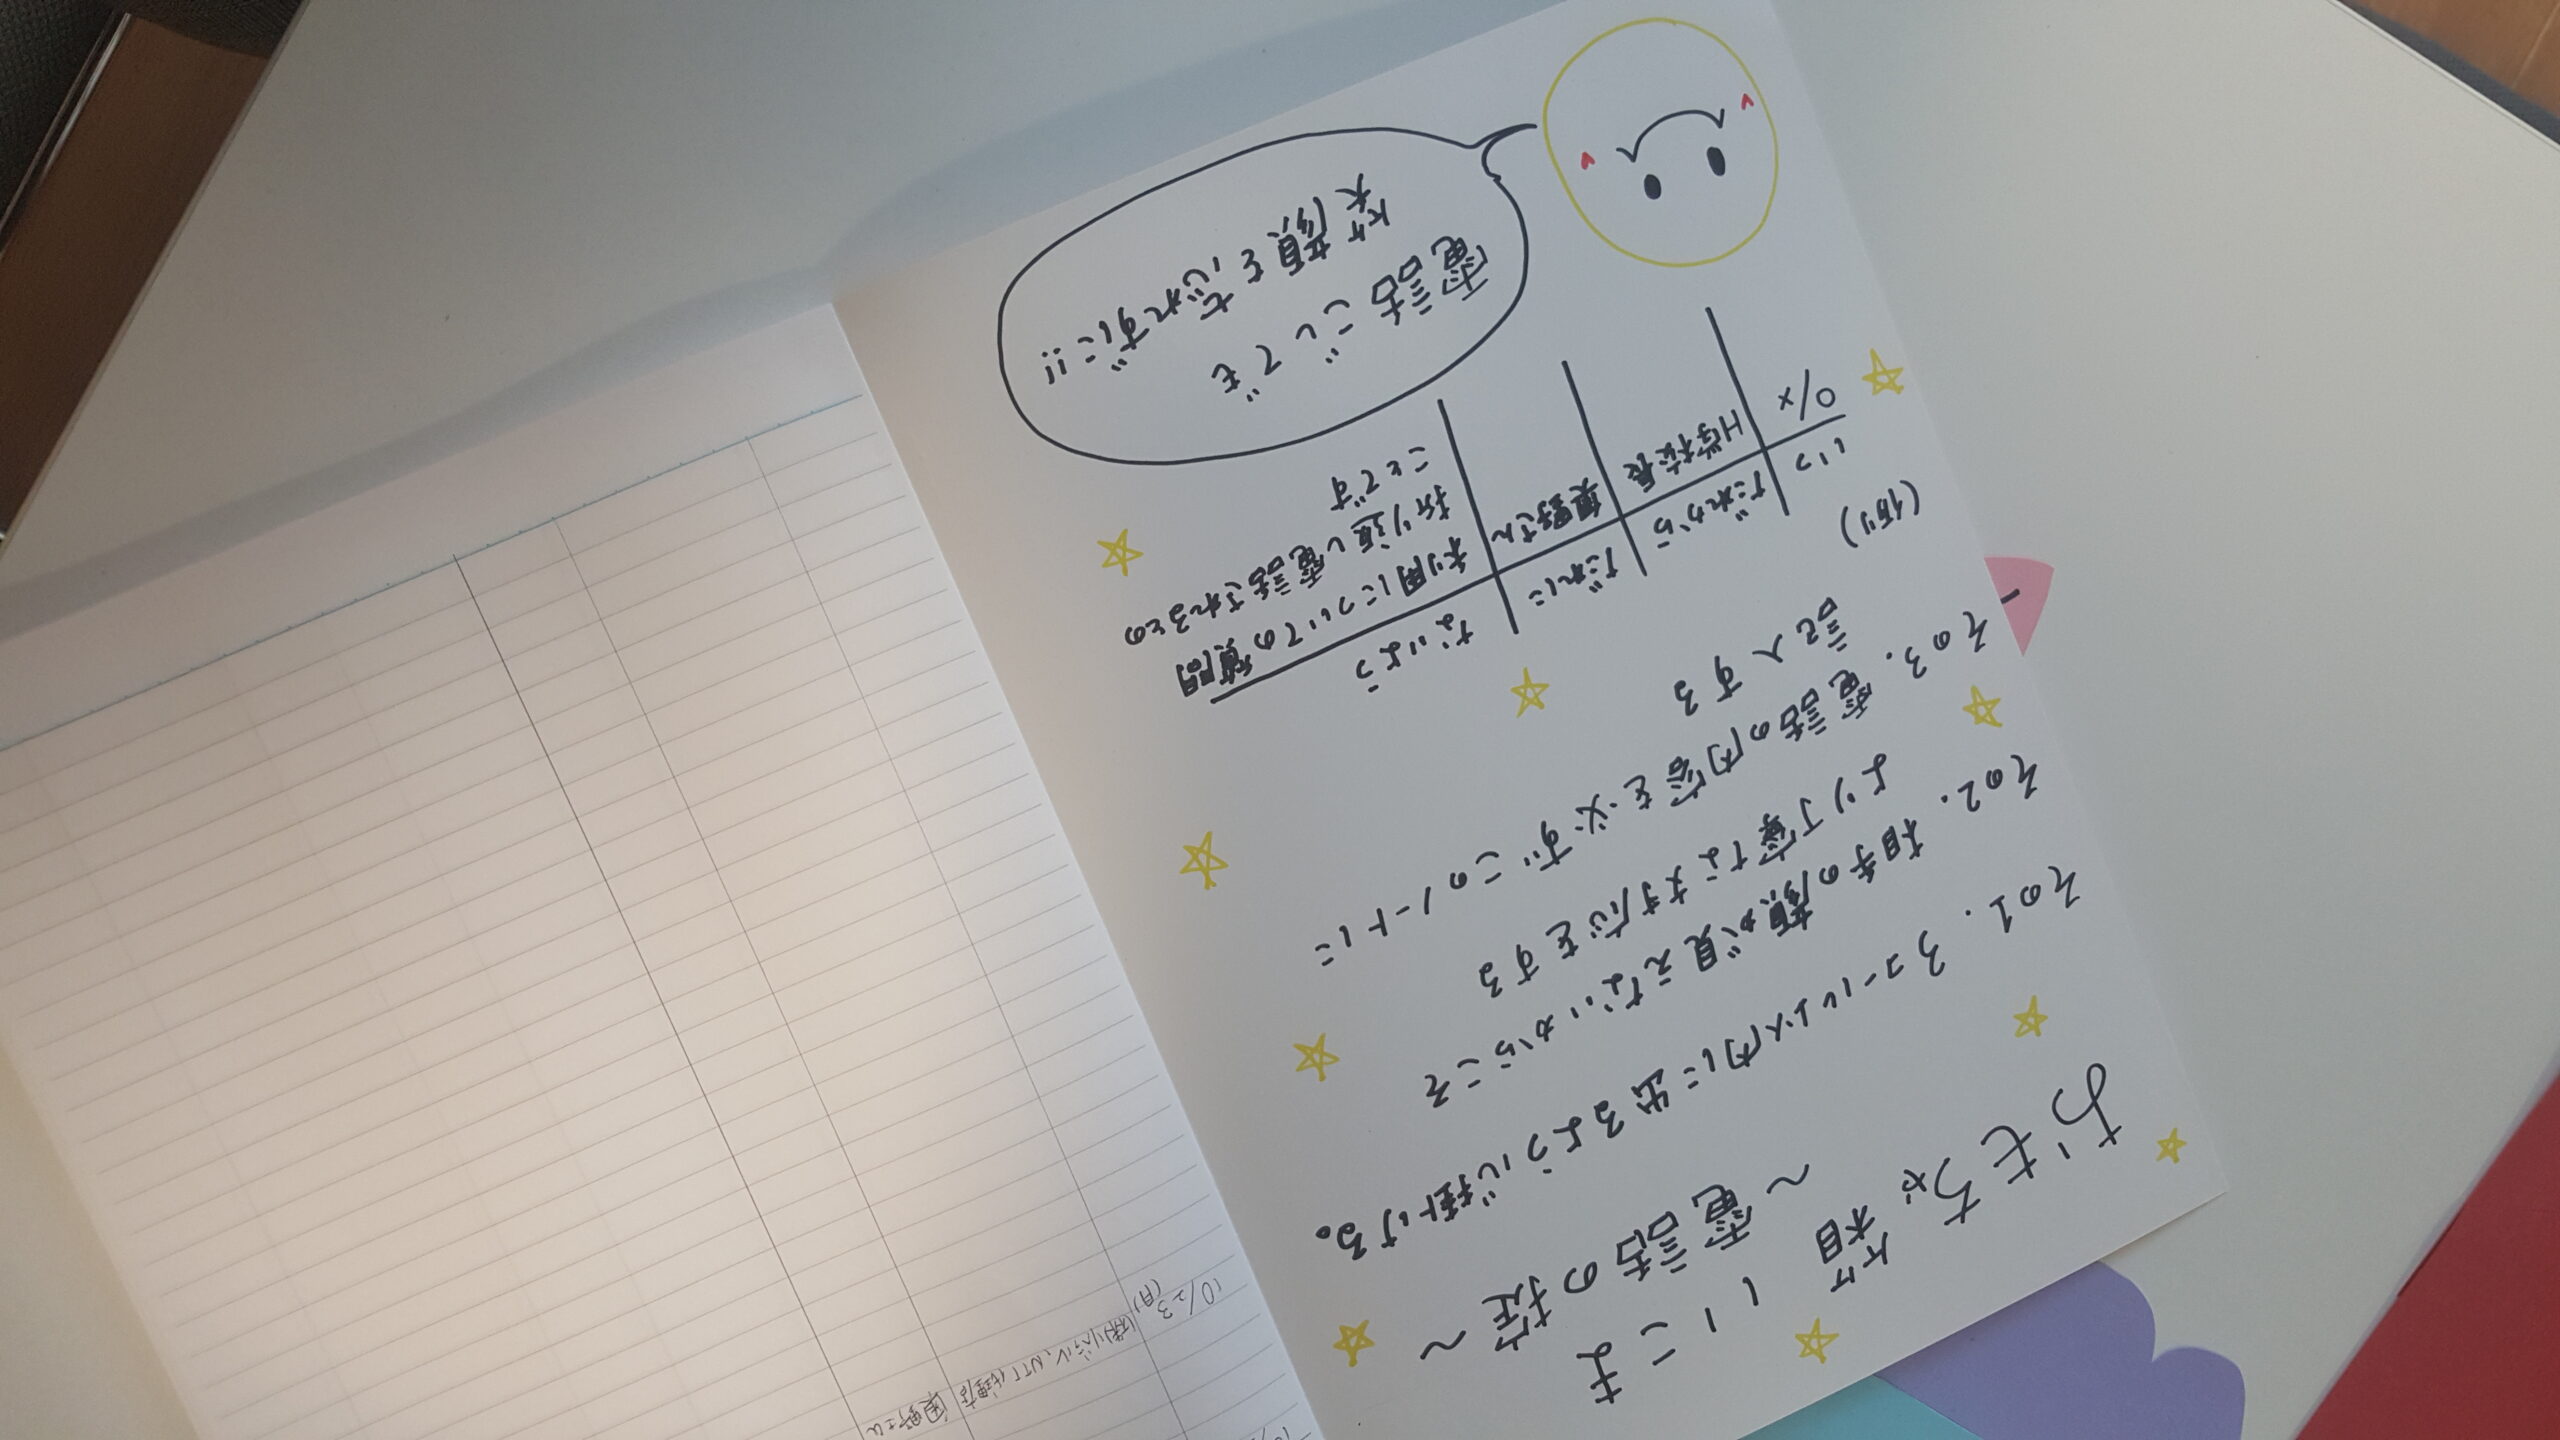 おもちゃ箱
いこま
～電話の掟～
その1. 3コール以内に出るよう心掛ける。
その2. 相手の顔が見えないからこそ
より丁寧な対応をする
その3. 電話の内容を必ずこのノートに
記入する
(例)
いつ だれから だれに ないよう
○/× H学校長 奥野さん 利用についての質問
折り返し電話されるとの
ことです
電話ごしでも
笑顔を忘れずに!!
10/23
(月)
奥野さん